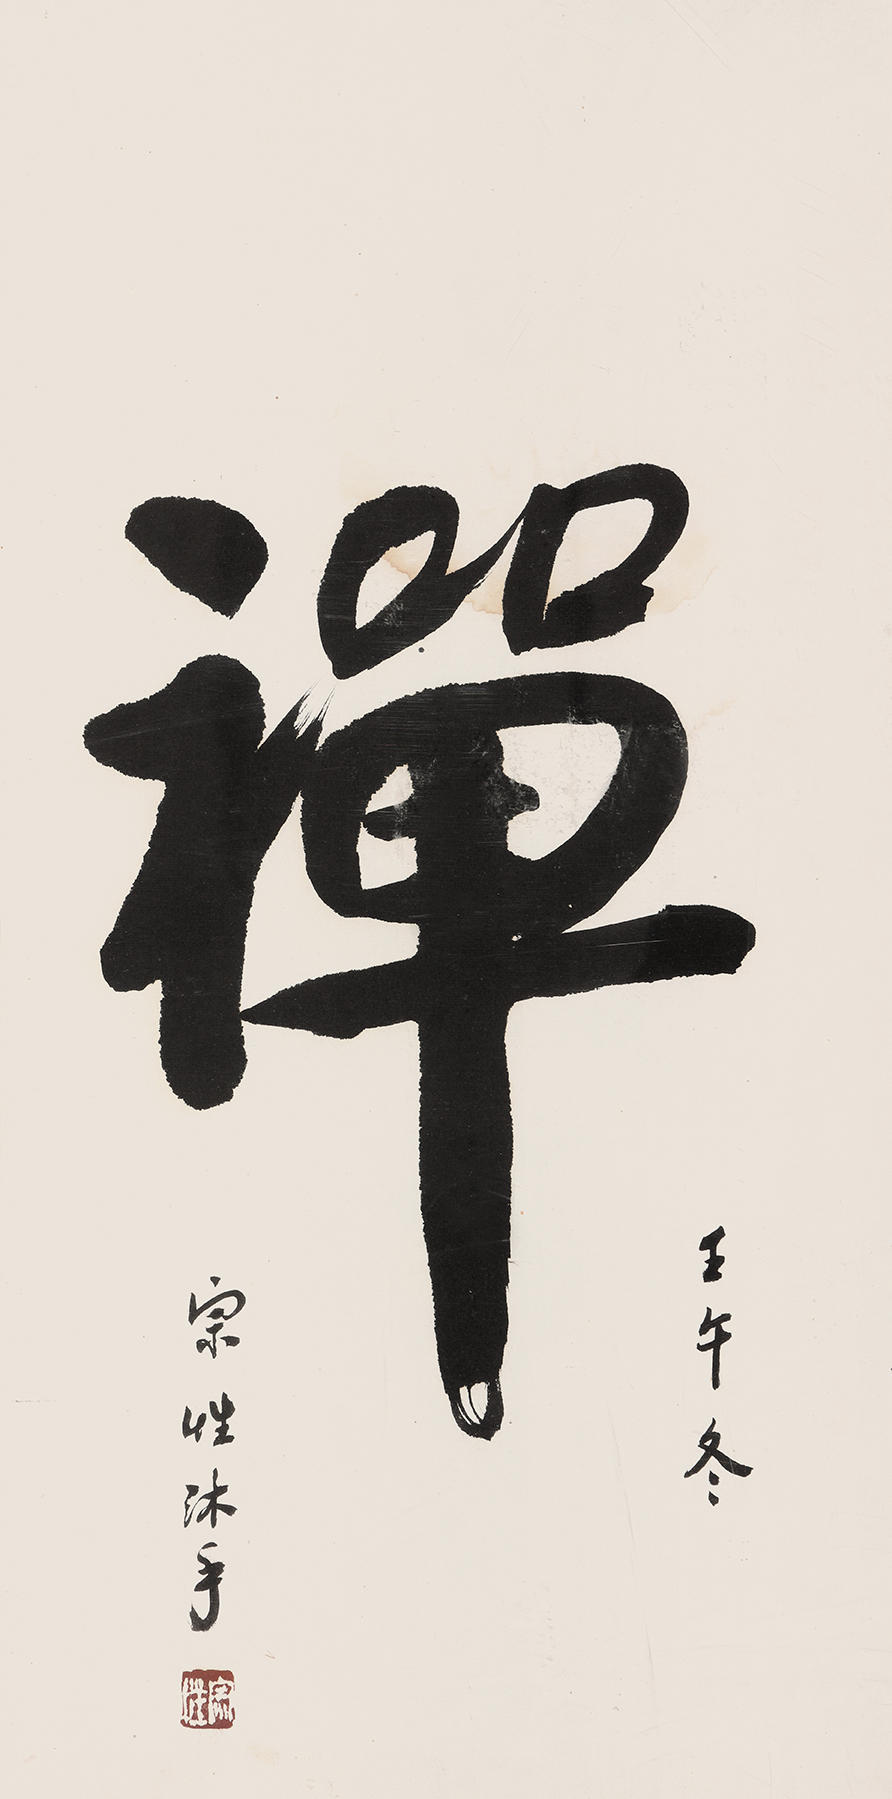 壬午冬
禪
宗性沐手
宗性